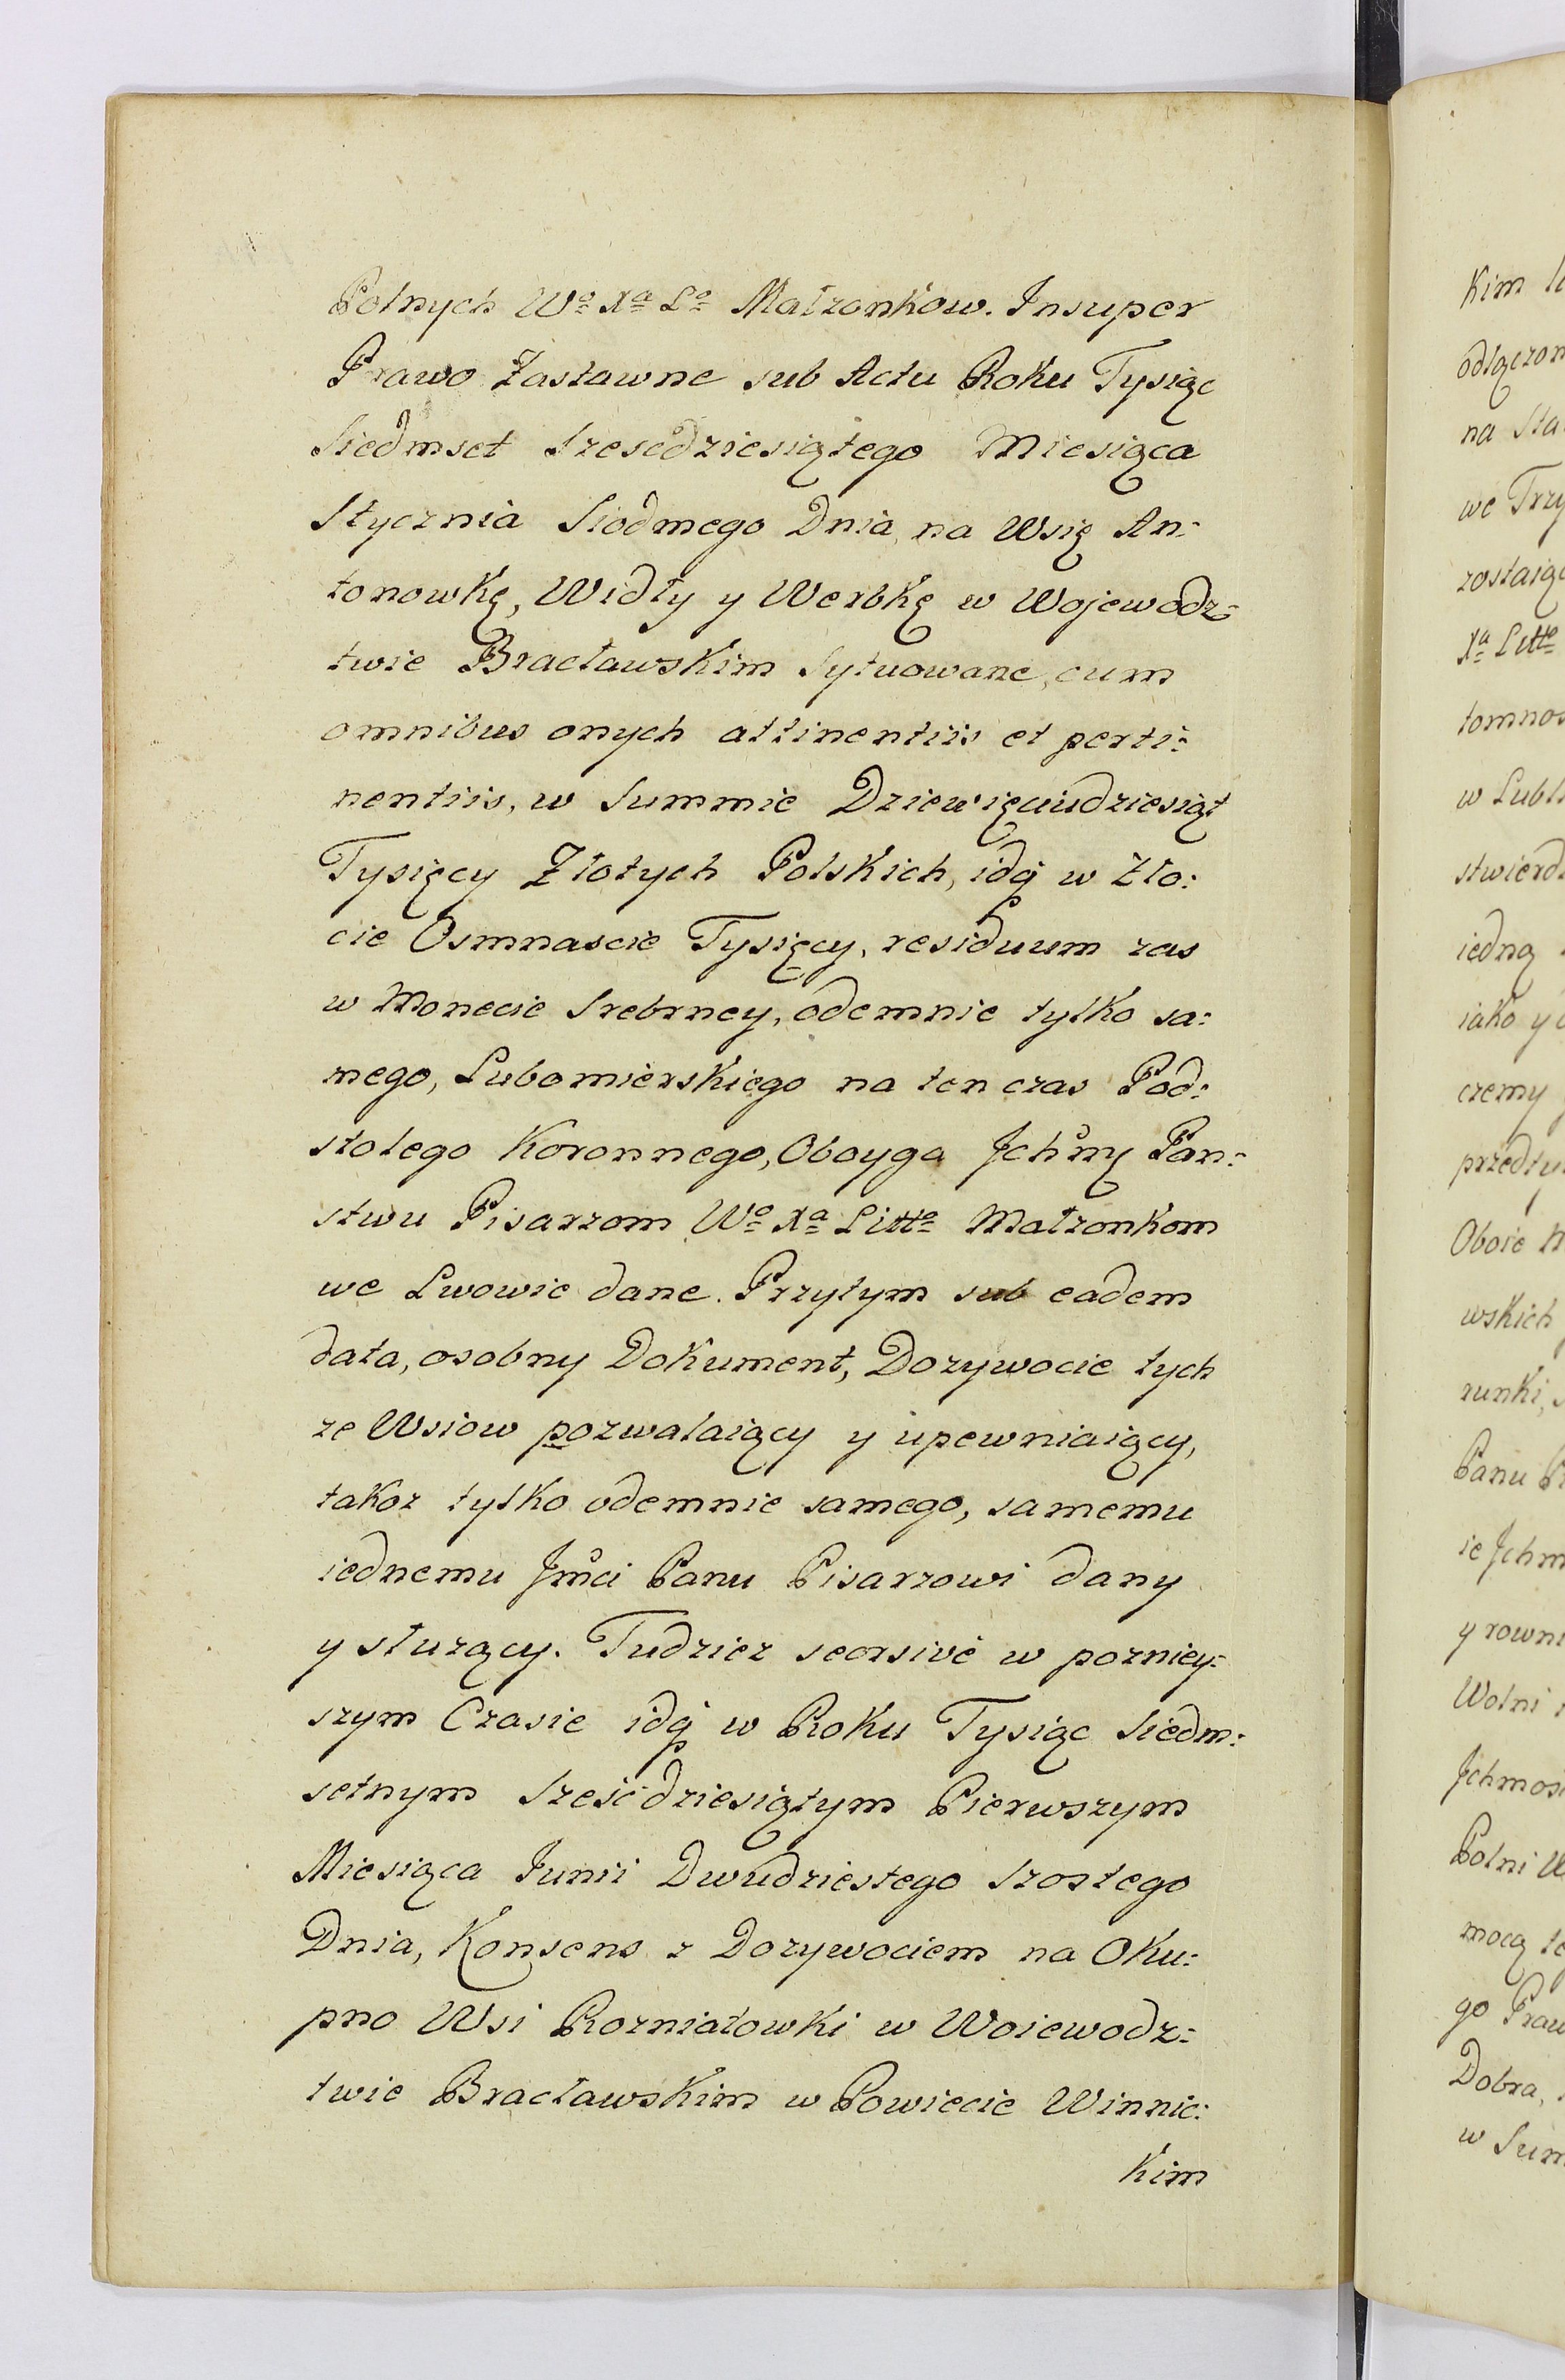 Polnych Wo Xa Lo Małzonkow. Insuper
Prawo Zastawne sub Actu Roku Tysiąc
Siedmset Szescdziesiątego Miesiąca
Stycznia Siodmego Dnia, na Wsię An:
tonowkę, Widły y Werbkę w Wojewodz:
twie Bracławskim Sytuowane, cum
omnibus onych attinentiis et perti:
nentiis, w Summie Dziewięciudziesiąt
Tysięcy Złotych Polskich, idq w Zło:
cie Osmnascie Tysięcy, residuum zas
w Monecie Srebrney, odemnie tylko sa:
mego, Lubomierskiego na ten czas Pod:
stolego Koronnego, Oboyga Jchmę Pan:
stwu Pisarzom Wo Xa Litto Małzonkom
we Lwowie dane. Przytym sub eadem
data, osobny Dokument, Dozywocie tych
ze Wsiow pozwalaiący y upewniaiący,
takoz tylko odemnie samego, samemu
iednemu Jmci Panu Pisarzowi dany
y słuzący. Tudziez seorsive w pozniey:
szym Czasie idq w Roku Tysiąc Siedm:
setnym Sześćdziesiątym Pierwszym
Miesiąca Junii Dwudziestego Szostego
Dnia, Konsens z Dozywociem na Oku:
pno Wsi Rozniatowki w Woiewodz:
twie Bracławskim w Powiecie Winnic:
kim
Kim
odłączon
na Sta
we Trzy
zostaiąc
Xa Litto
tomnos
w Lubl
stwierd
iedną
iako y
czemy
przedty
Oboie
wskich
runki,
Panu
ie Jchm
y rowni
Wolni
Jchmos
Polni
mocą te
go Praw
Dobra,
w Sum